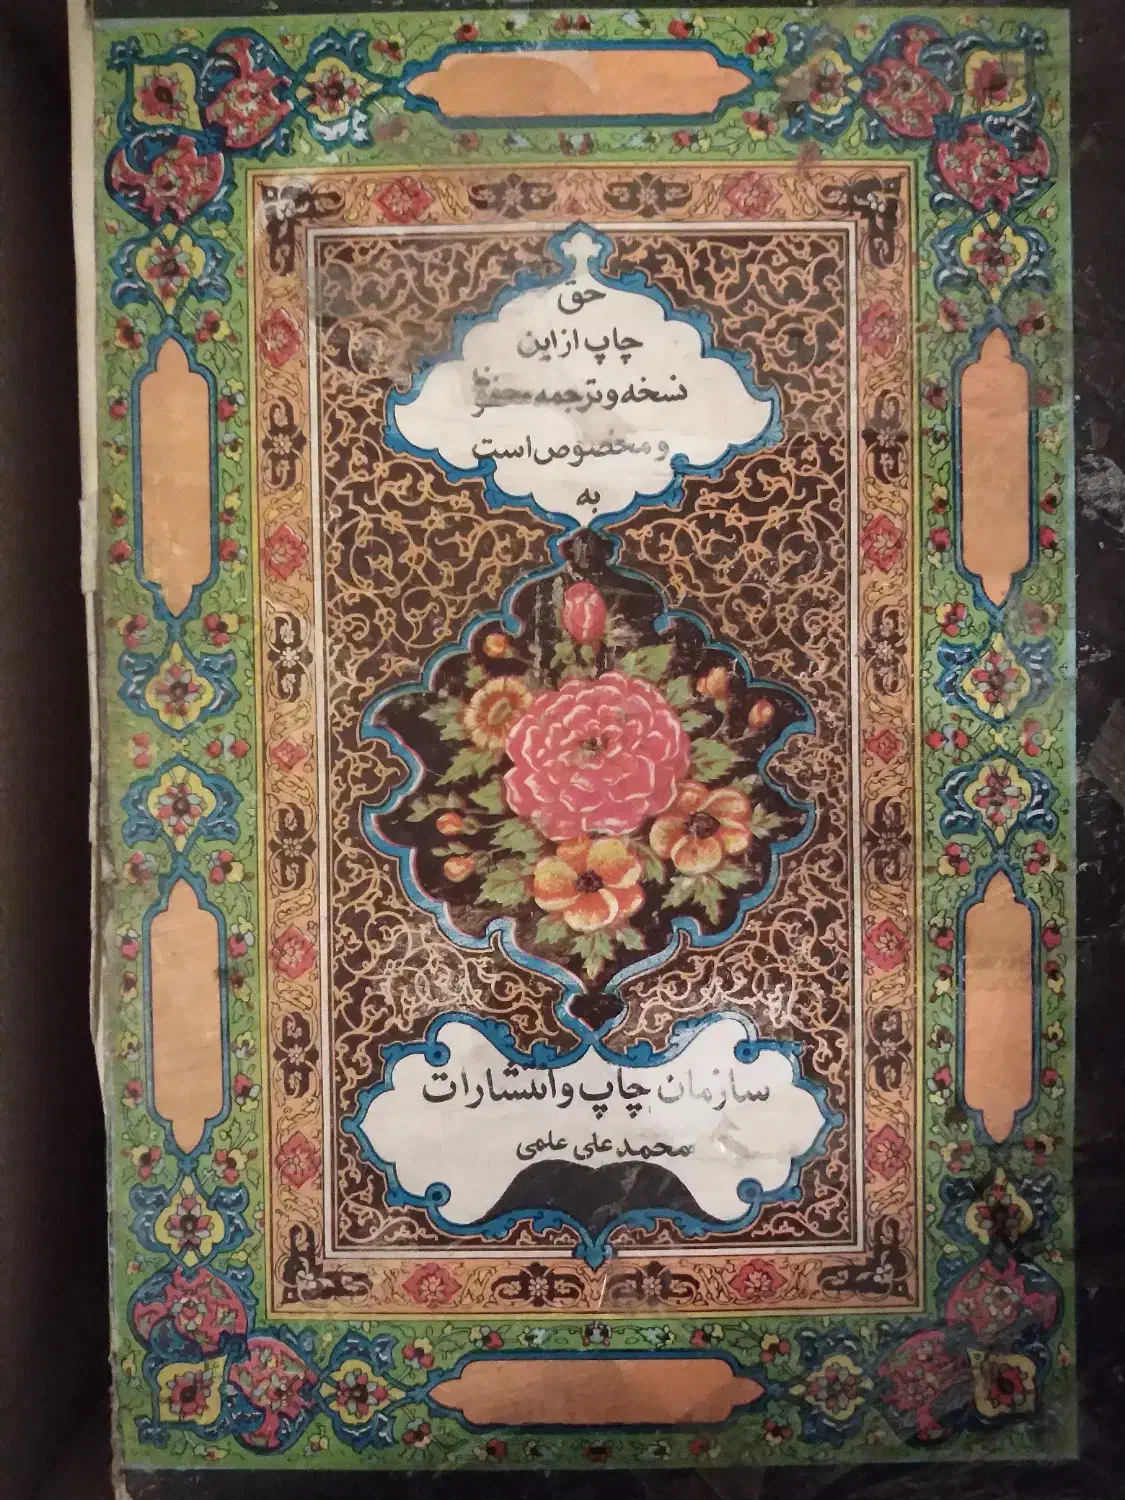 حق
چاپ از این
نسخه و ترجمه محفوظ
و مخصوص است
به
سازمان چاپ و انتشارات
محمد علی علمی